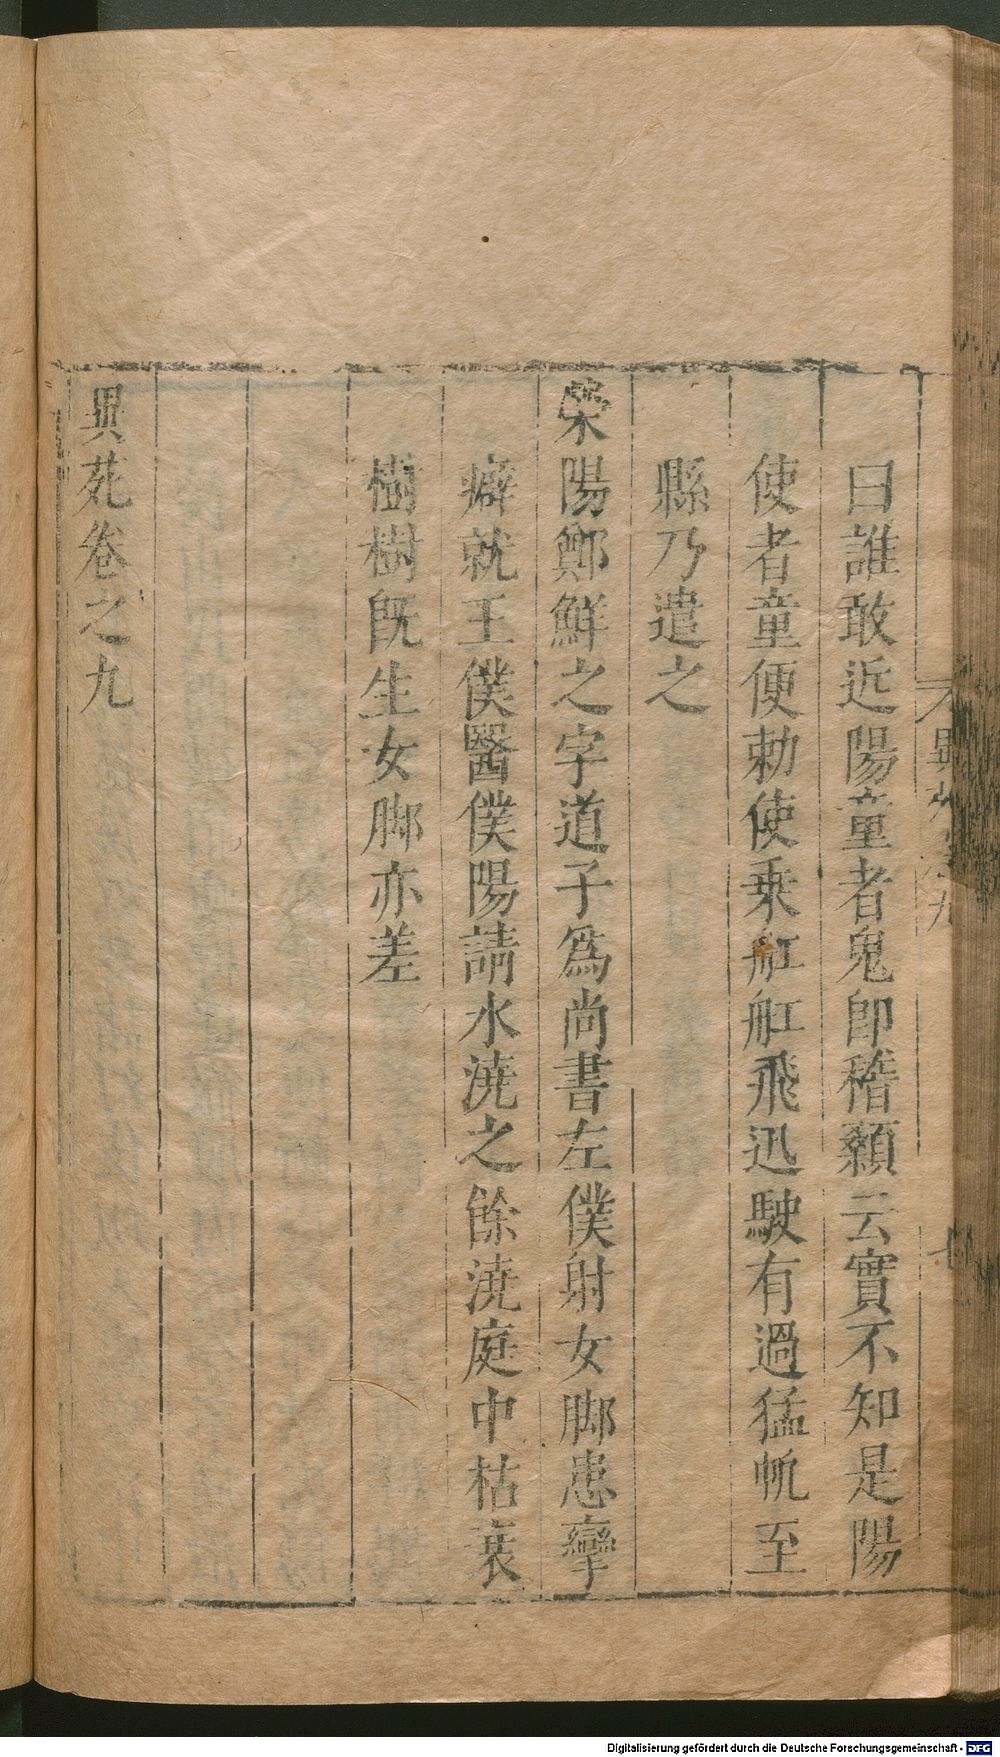 曰誰敢近陽童者鬼即稽顙云實不知是陽
使者童便勅使乗舡舡飛迅駛有過猛帆至
縣乃遣之
榮陽鄭鮮之字道子爲尚書左僕射女脚患攣
癖就王僕醫僕陽請水澆之餘澆庭中枯棗
樹樹既生女脚亦差
異苑卷之九
Digitalisierung gefördert durch die Deutsche Forschungsgemeinschaft - DFG